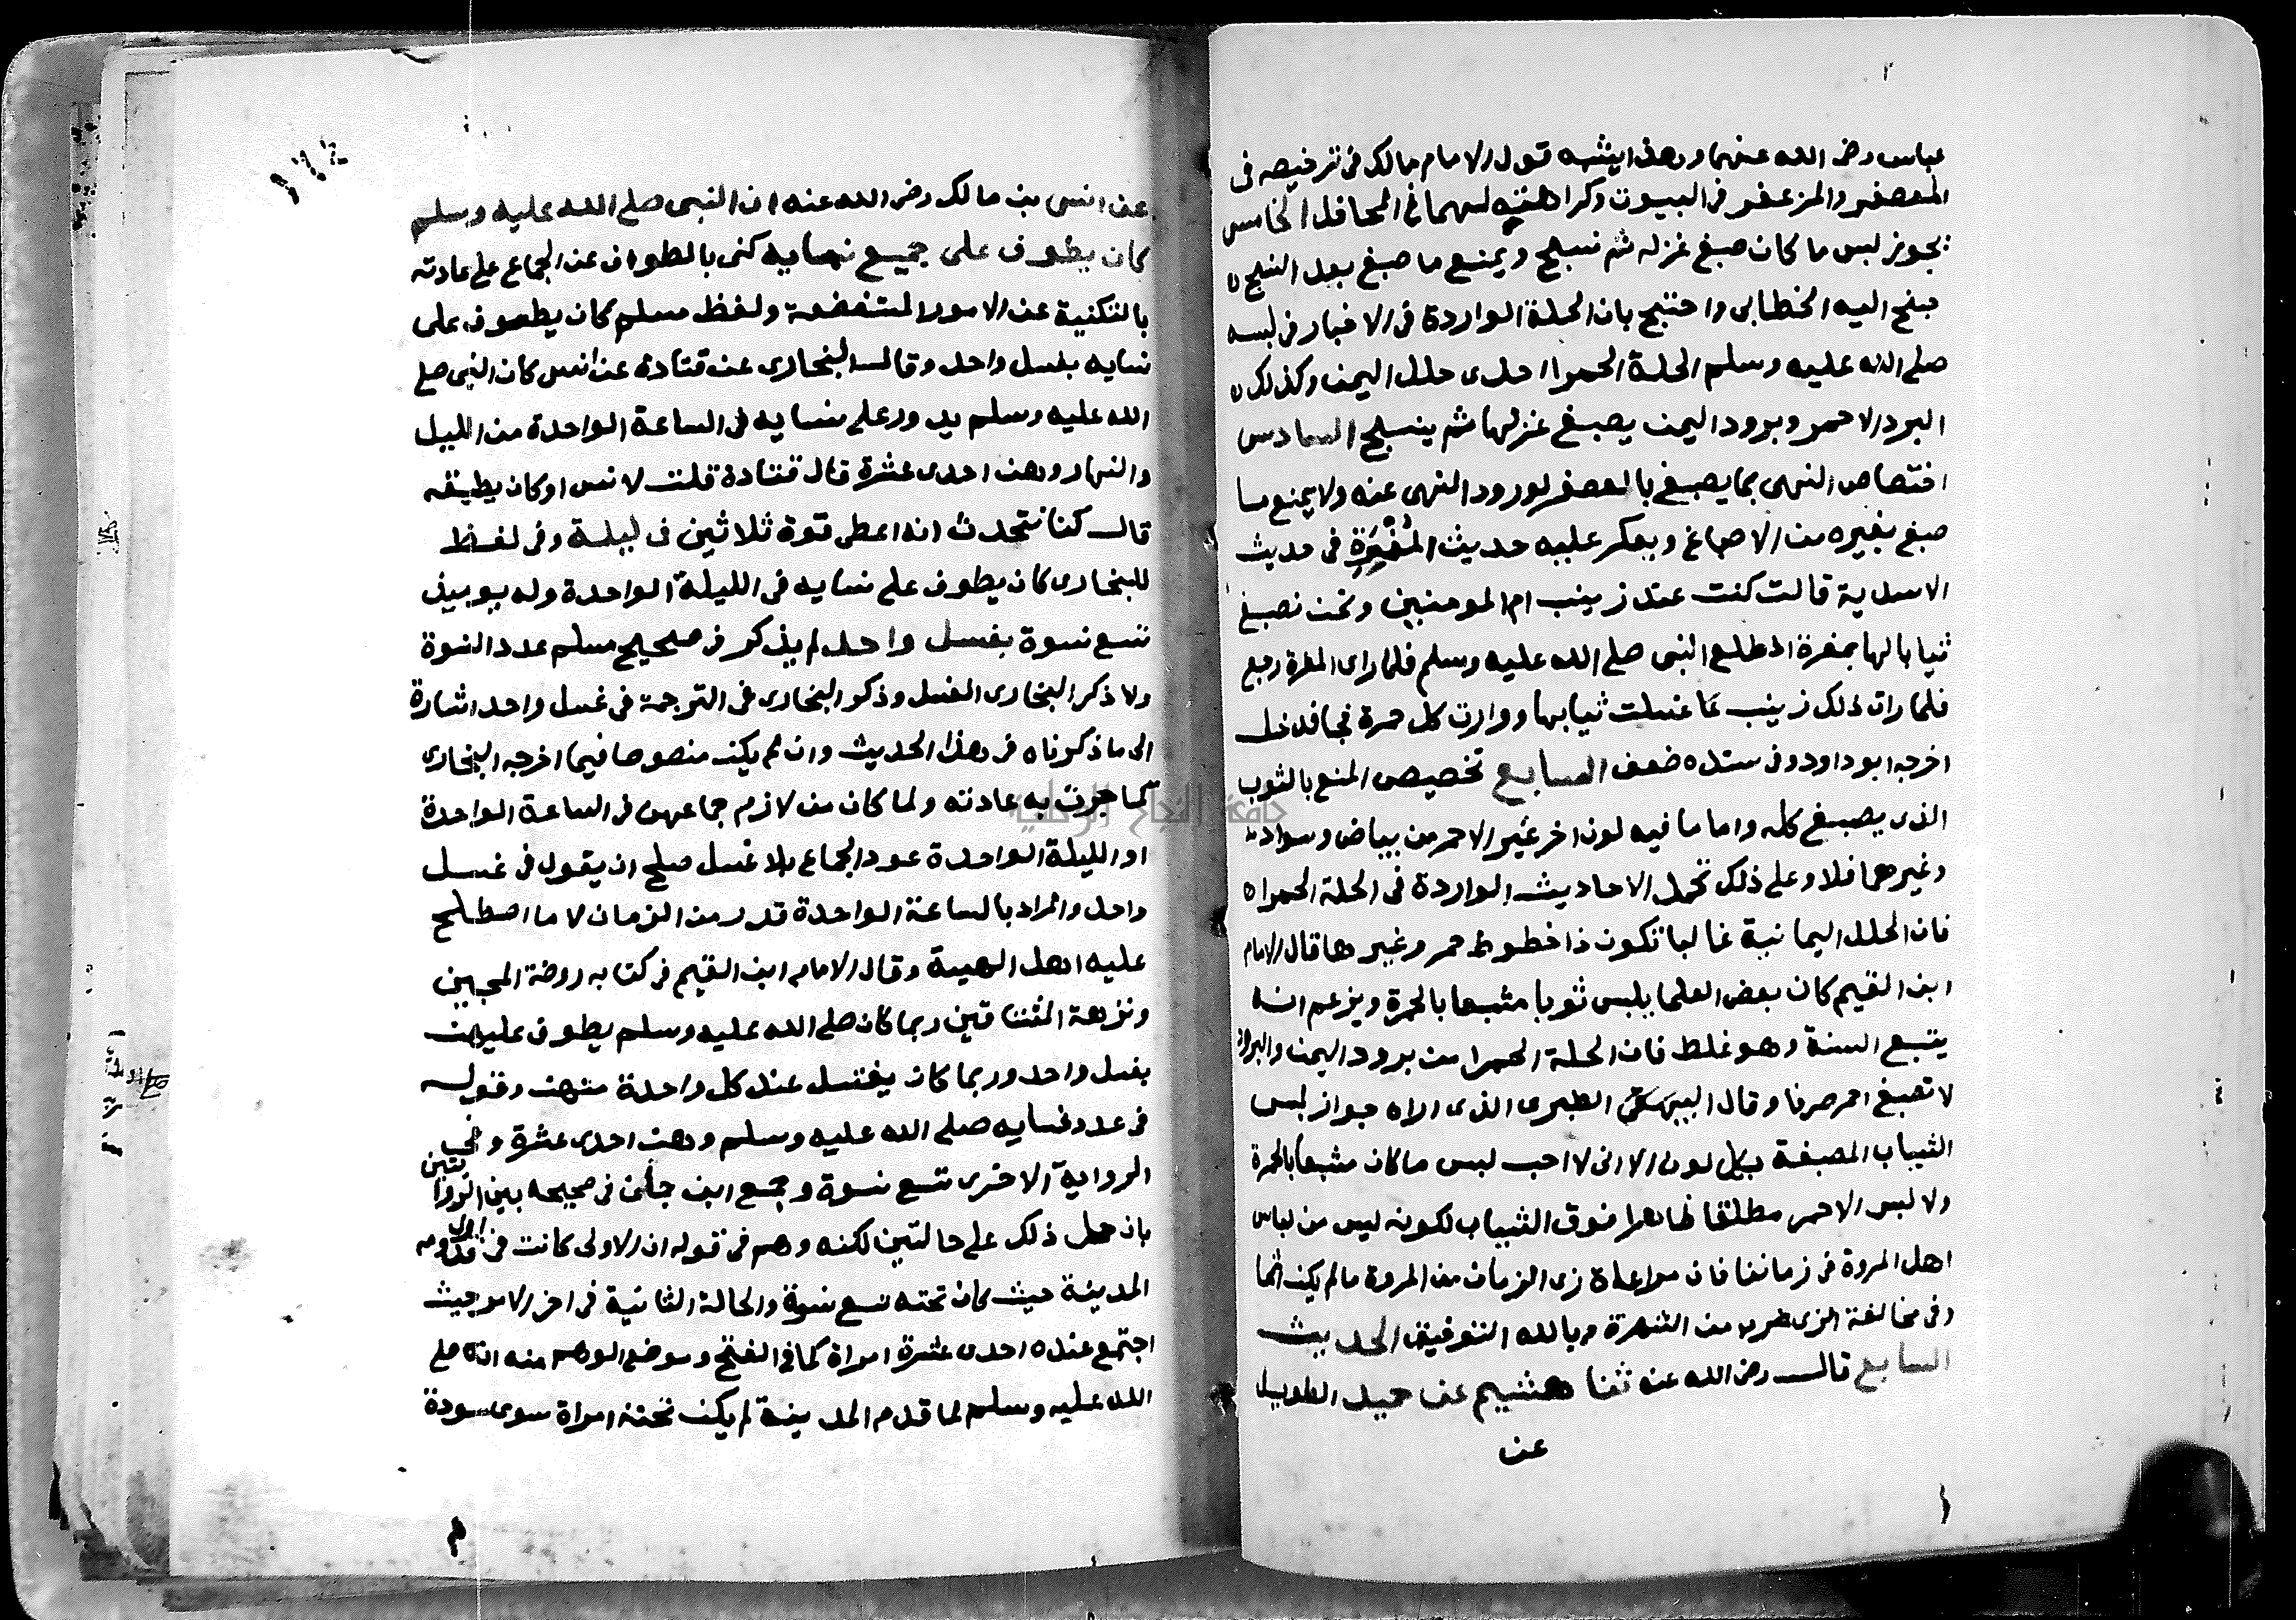 عباس رضي الله عنهما وهذا يشبه قول الامام مالك في ترخيصه في
المعصفر والمزعفر في البيوت وكراهته لهما في المحافل الخامس
يجوز لبس ما كان صبغ غزله ثم نسج ويمنع ما صبغ بعد النسج
جنح اليه الخطابي واحتج بان الحلة الواردة في الاخبار في لبسه
صلى الله عليه وسلم الحلة الحمرا احدى حلل اليمن وكذلك
البرد الاحمر وبرود اليمن يصبغ غزلها ثم ينسج السادس
اختصاص النهى بما يصبغ بالعصفر لورود النهى عنه ولا يمنع ما
صبغ بغيره من الاصباغ ويعكر عليه حديث المغرة في حديث
الاسدية قالت كنت عند زينب ام المومنين ونحن نصبغ
ثيابا لها بمغرة اذ طلع النبى صلى الله عليه وسلم فلما راى المغرة رجع
فلما رات ذلك زينب غسلت ثيابها ووارت كل حمرة فجا فدخل
اخرجه ابو داود وفى سنده ضعف السابع تخصيص المنع بالثوب
الذى يصبغ كله واما ما فيه لون اخر غير الاحمر من بياض وسواد
وغيرهما فلا وعلى ذلك تحمل الاحاديث الواردة فى الحلة الحمراء
فان الحلل اليمانية غالبا تكون ذا خطوط حمر وغيرها قال الامام
ابن القيم كان بعض العلما يلبس ثوبا مشبعا بالحمرة ويزعم انه
يتبع السنة وهو غلط فان الحلة الحمرا من برود اليمن والبرود
لا تصبغ احمر صرفا وقال الطبرى الذى اراه جواز لبس
الثياب المصبغة بكل لون الا انى لا احب لبس ما كان مشبعا بالحمرة
ولا لبس الاحمر مطلقا ظاهرا فوق الثياب لكونه ليس من لباس
اهل المروة فى زماننا فان مراعاة زى الزمان من المروة ما لم يكن اثما
وفى مخالفة الزى ضرب من الشهرة وبالله التوفيق الحديث
السابع قال رضى الله عنه ثنا هشيم عن حميد الطويل
عن
عن انس بن مالك رضى الله عنه ان النبى صلى الله عليه وسلم
كان يطوف على جميع نسايه كنى بالطواف عن الجماع على عادته
بالتكنية عن الامور المستفضعة ولفظ مسلم كان يطوف على
نسايه بغسل واحد وقال البخارى عن قتادة عن انس كان النبى صلى
الله عليه وسلم يدور على نسايه فى الساعة الواحدة من الليل
والنهار وهن احدى عشرة قال قتادة قلت لانس او كان يطيقه
قال كنا نتحدث انه اعطى قوة ثلاثين فى ليلة وفى لفظ
للبخارى كان يطوف على نسايه فى الليلة الواحدة وله يوميذ
تسع نسوة بغسل واحد لم يذكر فى صحيح مسلم عدد النسوة
ولا ذكر البخارى الغسل وذكر البخارى فى الترجمة فى غسل واحد اشارة
الى ما ذكرناه فى هذا الحديث وان لم يكن منصوصا فيما اخرجه البخارى
كما جرت به عادته ولما كان من لازم جماعهن فى الساعة الواحدة
او الليلة الواحدة عود الجماع بلا غسل صلح ان يقول فى غسل
واحد والمراد بالساعة الواحدة قدر من الزمان لا ما اصطلح
عليه اهل الهيية وقال الامام ابن القيم فى كتابه روضة المحبين
ونزهة المشتاقين ربما كان صلى الله عليه وسلم يطوف عليهن
بغسل واحد وربما كان يغتسل عند كل واحدة منهن وقوله
فى عدد نسايه صلى الله عليه وسلم وهن احدى عشرة وفى
الرواية الاخرى تسع نسوة وجمع ابن حبان فى صحيحه بين الروايتين
بان حمل ذلك على حالتين لكنه وهم فى قوله ان الاولى كانت فى اول قدومه
المدينة حيث كان تحته تسع نسوة والحالة الثانية فى اخر الامر حيث
اجتمع عنده احدى عشرة امراة كما فى الفتح وموضع الوهم منه انه صلى
الله عليه وسلم لما قدم المدينة لم يكن تحته امراة سوى سودة
جامعة النجاح الوطنية